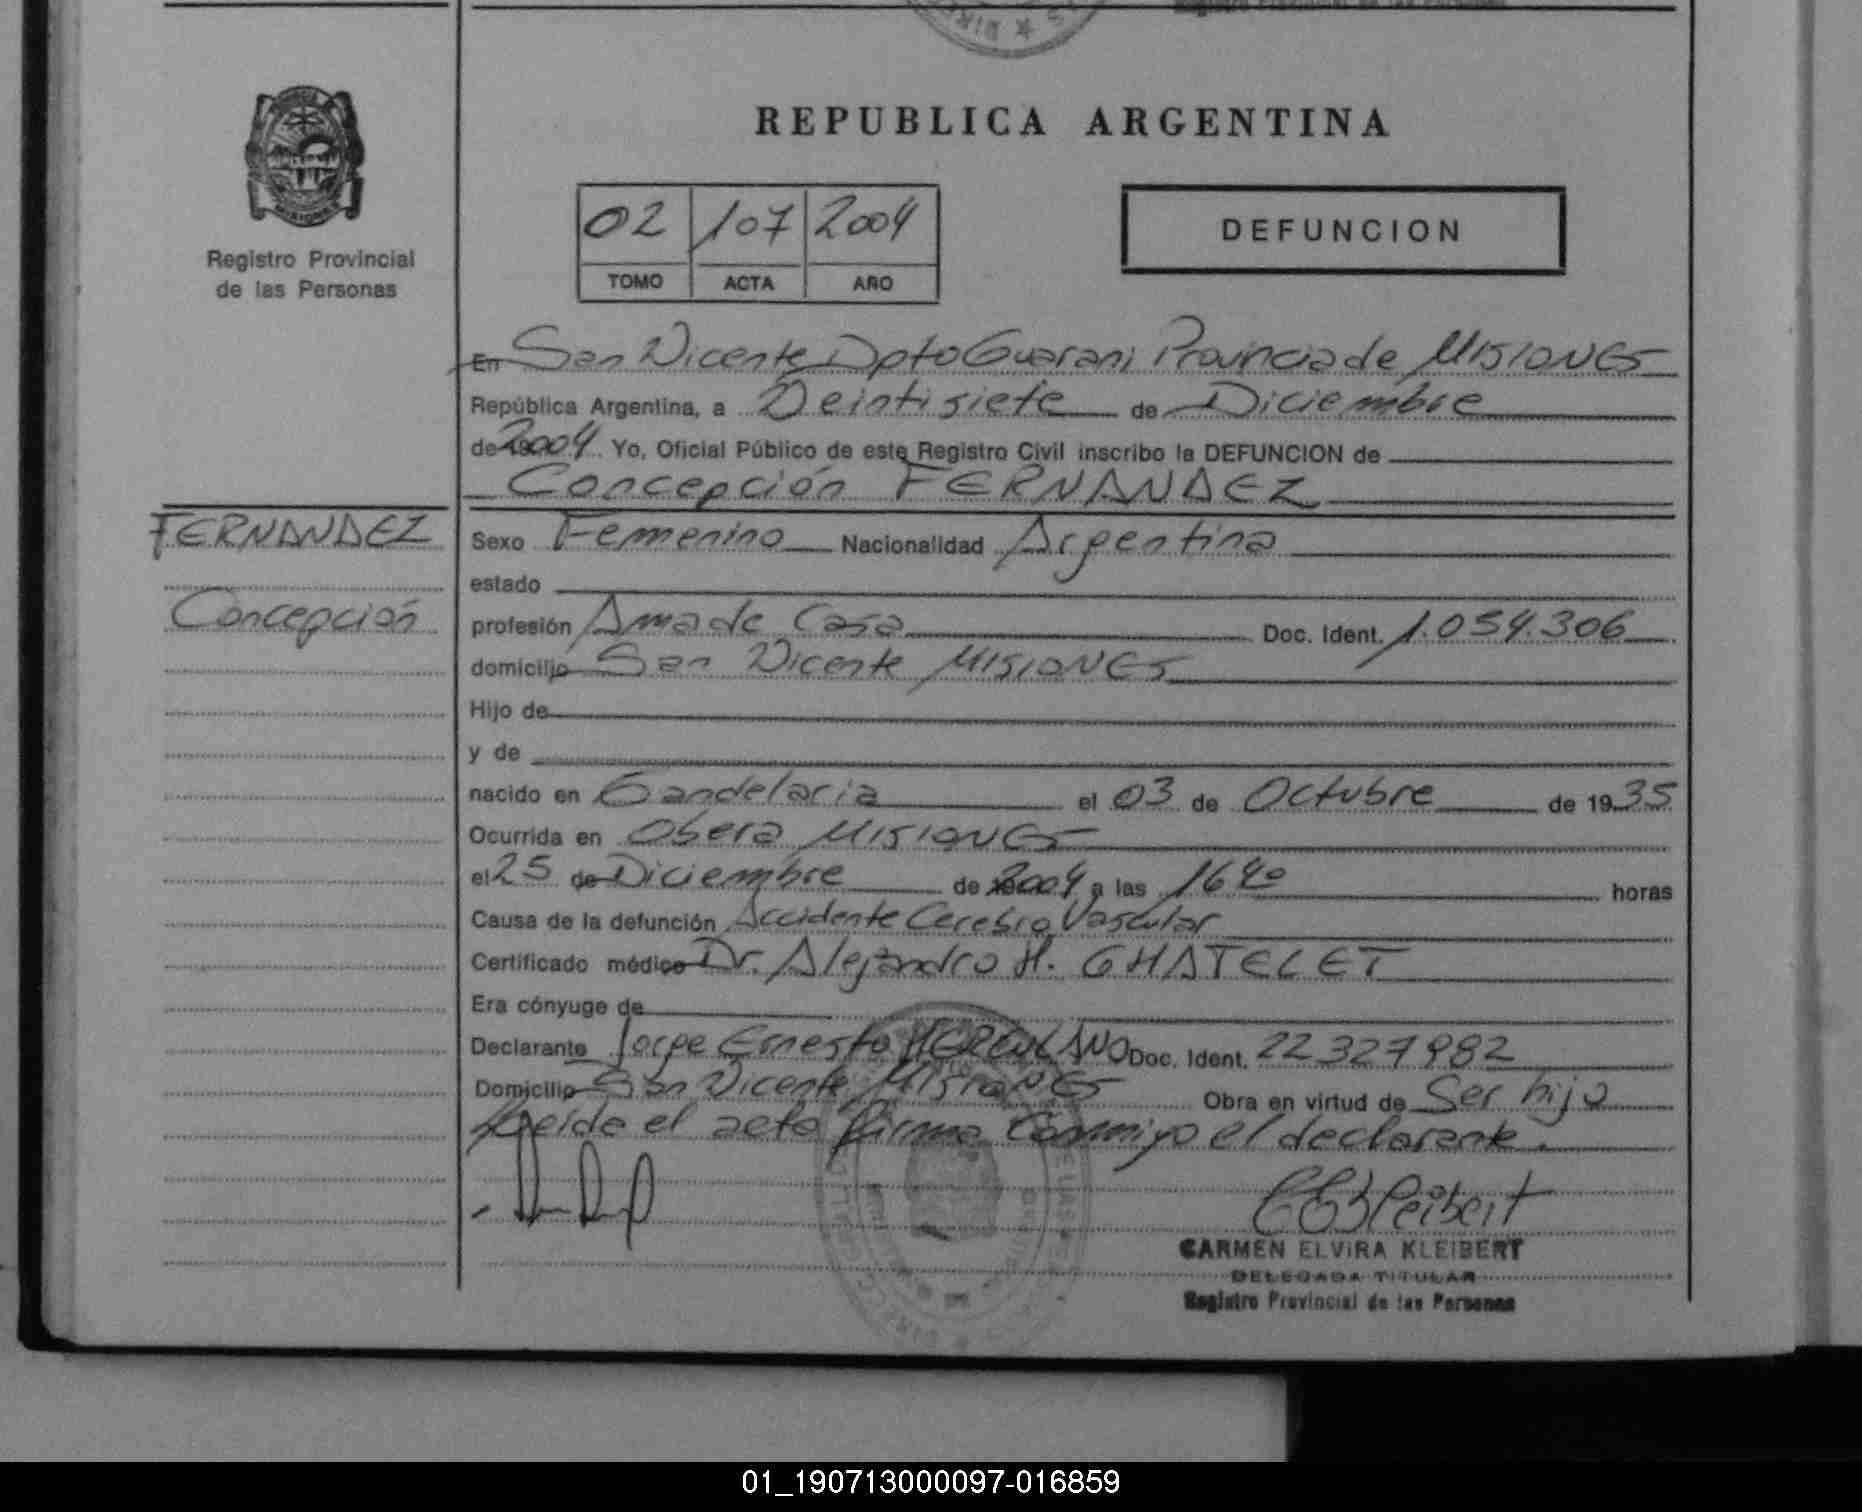 REPUBLICA ARGENTINA
MISIONES
Registro Provincial
de las Personas
02 107 2004
TOMO ACTA AÑO
DEFUNCION
En San Vicente Dpto Guarani Provincia de MISIONES
República Argentina, a Veintisiete de Diciembre
de 2004 Yo, Oficial Público de este Registro Civil inscribo la DEFUNCION de
Concepción FERNANDEZ
FERNANDEZ
Concepción
Sexo Femenino Nacionalidad Argentina
estado
profesión Ama de Casa Doc. Ident. 1.054.306
domicilio San Vicente MISIONES
Hijo de
y de
nacido en Candelaria el 03 de Octubre de 1935
Ocurrida en Obera MISIONES
el 25 de Diciembre de 2004 a las 16 40 horas
Causa de la defunción Accidente Cerebro Vascular
Certificado médico Dr. Alejandro H. CHATELET
Era cónyuge de
Declarante Jorge Ernesto HERCULANO Doc. Ident. 22327982
Domicilio San Vicente MISIONES Obra en virtud de Ser hijo
Leida el acta firma Conmigo el declarante.
CEKleibert
CARMEN ELVIRA KLEIBERT
DELEGADA TITULAR
Registro Provincial de las Personas
01_190713000097-016859